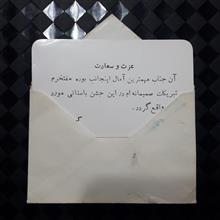 عزت و سعادت
آن جناب مهمترین آمال اینجانب بوده مفتخرم
تبریکات صمیمانه ام در این جشن باستانی مورد
واقع گردد.